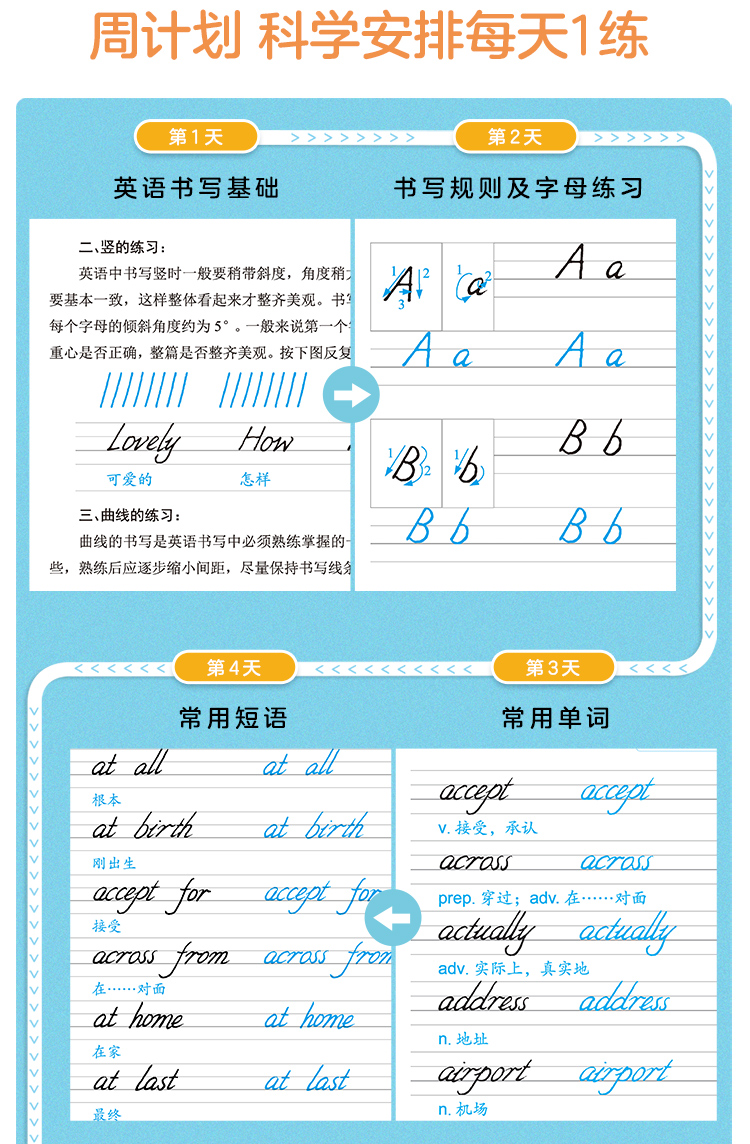 周计划 科学安排每天1练
第1天
英语书写基础
二、竖的练习：
英语中书写竖时一般要稍带斜度，角度稍
要基本一致，这样整体看起来才整齐美观。书
每个字母的倾斜角度约为5°。一般来说第一个
重心是否正确，整篇是否整齐美观。按下图反复
Lovely How
可爱的 怎样
三、曲线的练习：
曲线的书写是英语书写中必须熟练掌握的一
些，熟练后应逐步缩小间距，尽量保持书写线条
第2天
书写规则及字母练习
1 2 3 A 1 2 a A a
A a A a
1 2 B 1 b B b
B b B b
第3天
常用单词
accept accept
v. 接受，承认
across across
prep. 穿过；adv. 在……对面
actually actually
adv. 实际上，真实地
address address
n. 地址
airport airport
n. 机场
第4天
常用短语
at all at all
根本
at birth at birth
刚出生
accept for accept for
接受
across from across from
在……对面
at home at home
在家
at last at last
最终